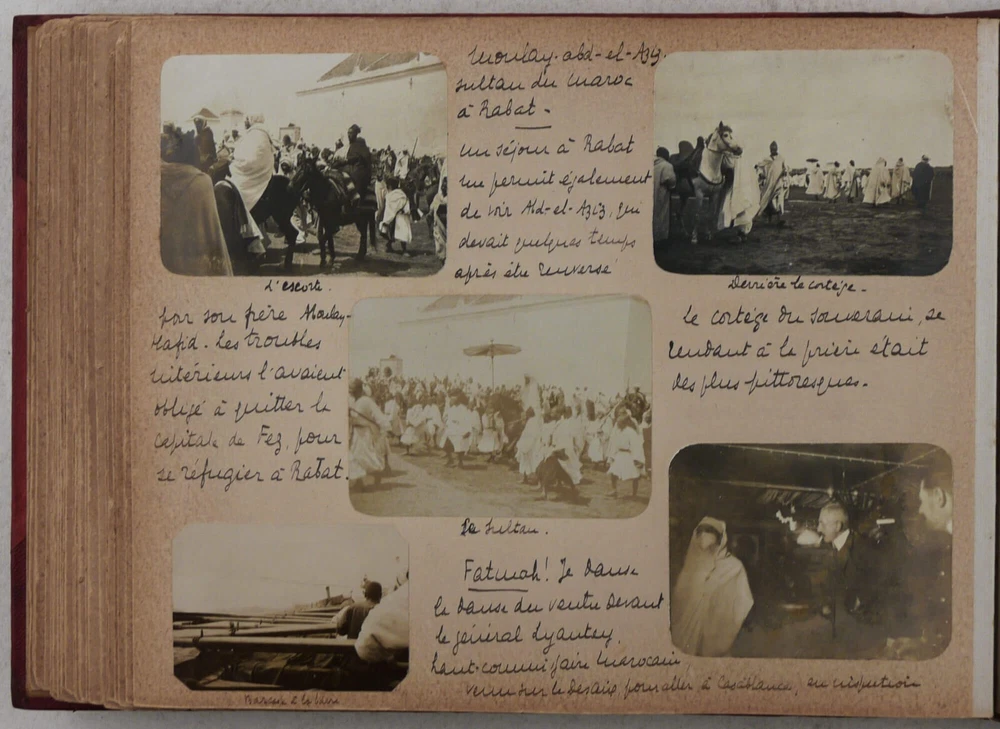 Moulay-abd-el-Aziz.
Sultan du Maroc
à Rabat -
un séjour à Rabat
me permit également
de voir Abd-el-Aziz, qui
devait quelques temps
après être renversé
L'escorte.
Derrière le cortège.
par son frère Moulay-
Hafid. Les troubles
intérieurs l'avaient
obligé à quitter la
capitale de Fez, pour
se réfugier à Rabat.
Le cortège du souverain, se
rendant à la prière était
des plus pittoresques.
Le Sultan.
Fatmah! Je danse
la danse du ventre devant
le général Lyautey,
haut-commissaire marocain,
venu sur le Desaix pour aller à Casablanca, en inspection
Barcasse à la barre